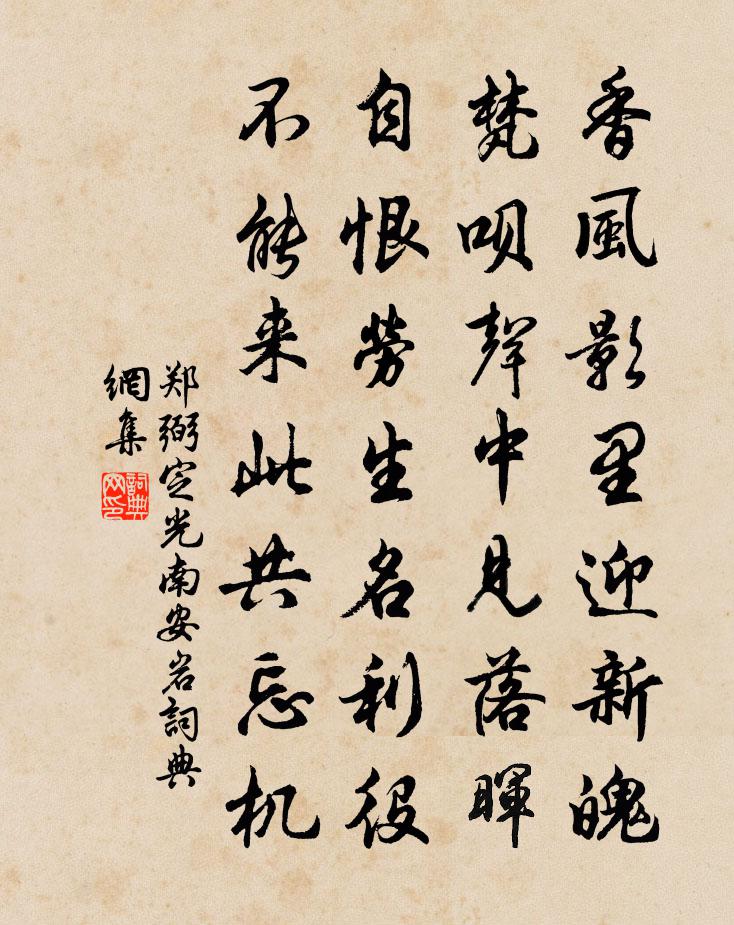 香風影里迎新魄
梵呗聲中見落暉
自恨勞生名利役
不能来此共忘机
郑弼定光南安岩詞典
網集
詞典网印